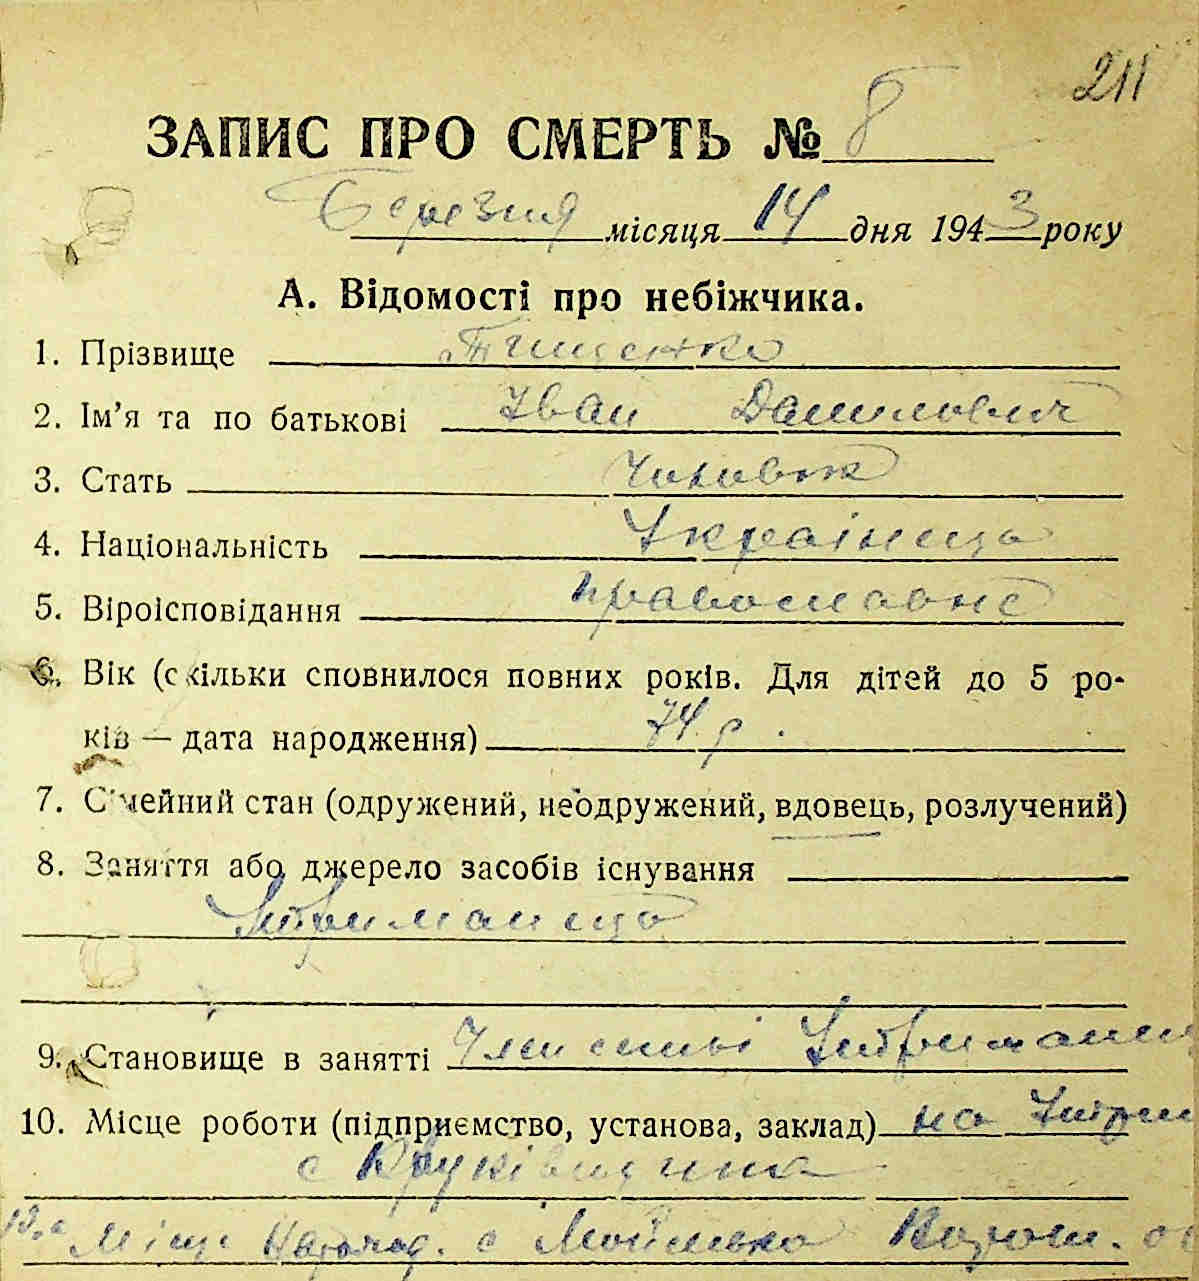 211
ЗАПИС ПРО СМЕРТЬ № 8
Березня місяця 14 дня 1943 року
А. Відомості про небіжчика.
1. Прізвище Тищенко
2. Ім’я та по батькові Іван Данилович
3. Стать Чоловік
4. Національність Українець
5. Віроісповідання православне
6. Вік (скільки сповнилося повних років. Для дітей до 5 ро-
ків — дата народження) 74 р.
7. Сімейний стан (одружений, неодружений, вдовець, розлучений)
8. Заняття або джерело засобів існування
Утриманець
9. Становище в занятті Член сім'ї Утриманец
10. Місце роботи (підприємство, установа, заклад) на Утрим
с Круківщина
Місце народ. с